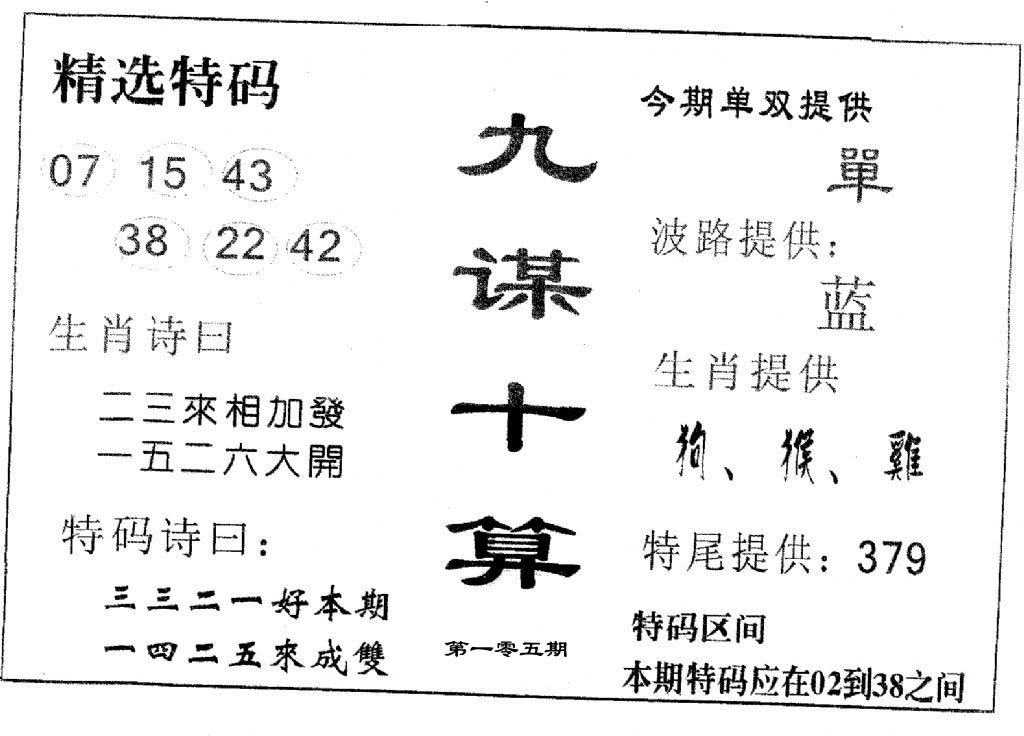 精选特码
07 15 43
38 22 42
生肖诗曰
二三來相加發
一五二六大開
特码诗曰：
三三二一好本期
一四二五來成雙
九谋十算
第一零五期
今期单双提供
單
波路提供：
蓝
生肖提供
狗、猴、雞
特尾提供：379
特码区间
本期特码应在02到38之间